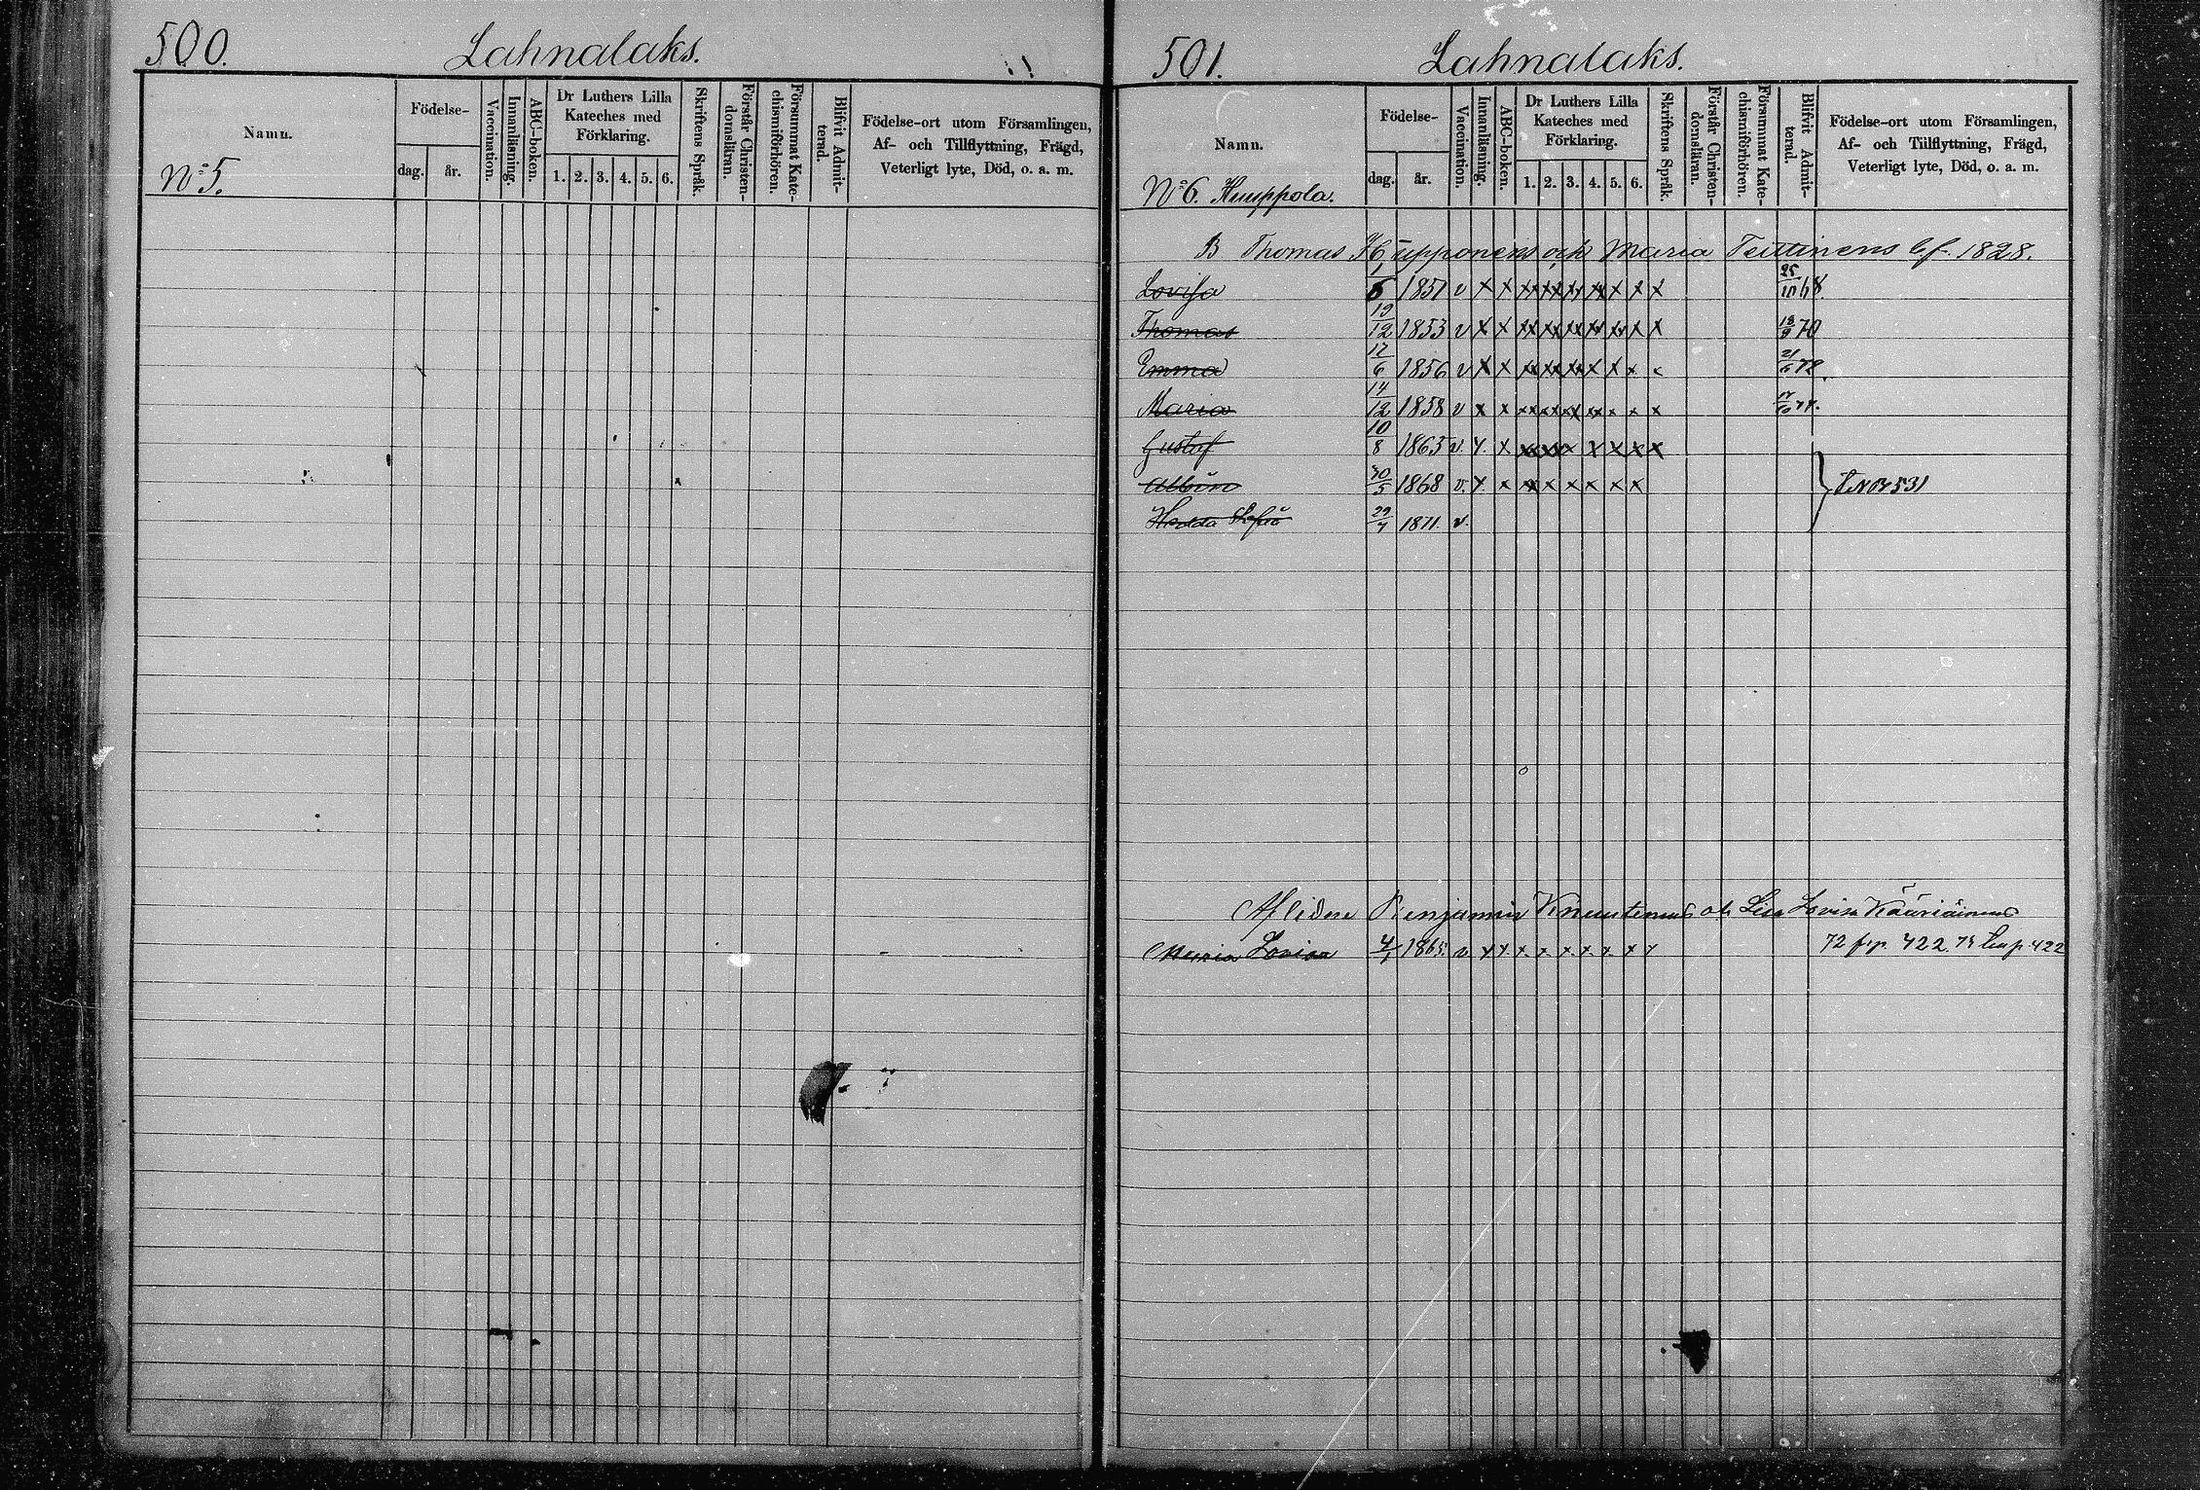 500. Lahnalaks.
Namn.
Födelse-
dag. år.
Vaccination.
Innanläsning.
ABC-boken.
Dr Luthers Lilla
Kateches med
Förklaring.
1. 2. 3. 4. 5. 6.
Skriftens Språk.
Förstår Christen-
domsläran.
Försummat Kate-
chismiförhören.
Blifvit Admit-
terad.
Födelse-ort utom Församlingen,
Af- och Tillflyttning, Frägd,
Veterligt lyte, Död, o. a. m.
No 5.
501. Lahnalaks.
Namn.
Födelse-
dag. år.
Vaccination.
Innanläsning.
ABC-boken.
Dr Luthers Lilla
Kateches med
Förklaring.
1. 2. 3. 4. 5. 6.
Skriftens Språk.
Förstår Christen-
domsläran.
Försummat Kate-
chismiförhören.
Blifvit Admit-
terad.
Födelse-ort utom Församlingen,
Af- och Tillflyttning, Frägd,
Veterligt lyte, Död, o. a. m.
No 6. Huuppola.
B Thomas och Maria Teittinens 1828.
Lovisa 1/6 1851 v x x xx xx xx xx x x x 25/10 68.
Thomas 19/12 1853 v x x xx xx xx xx xx x x 18/9 70
Emma 17/6 1856 v x x xx xx xx x x x x
Maria 14/12 1858 v x x xx xx xx xx x x x
Gustaf 10/8 1865 v. x. x xx xx x x x x x
Albin 30/5 1868 v. x. x x x x x x x 531
Hedda Sofia 29/7 1871. v.
Aflidne Benjamin och Lisa Lovisa Kääriäinens
Maria Lovisa 4/1 1865. v x x. x. x. x. x. x. x x 72 fr p. 422. 422